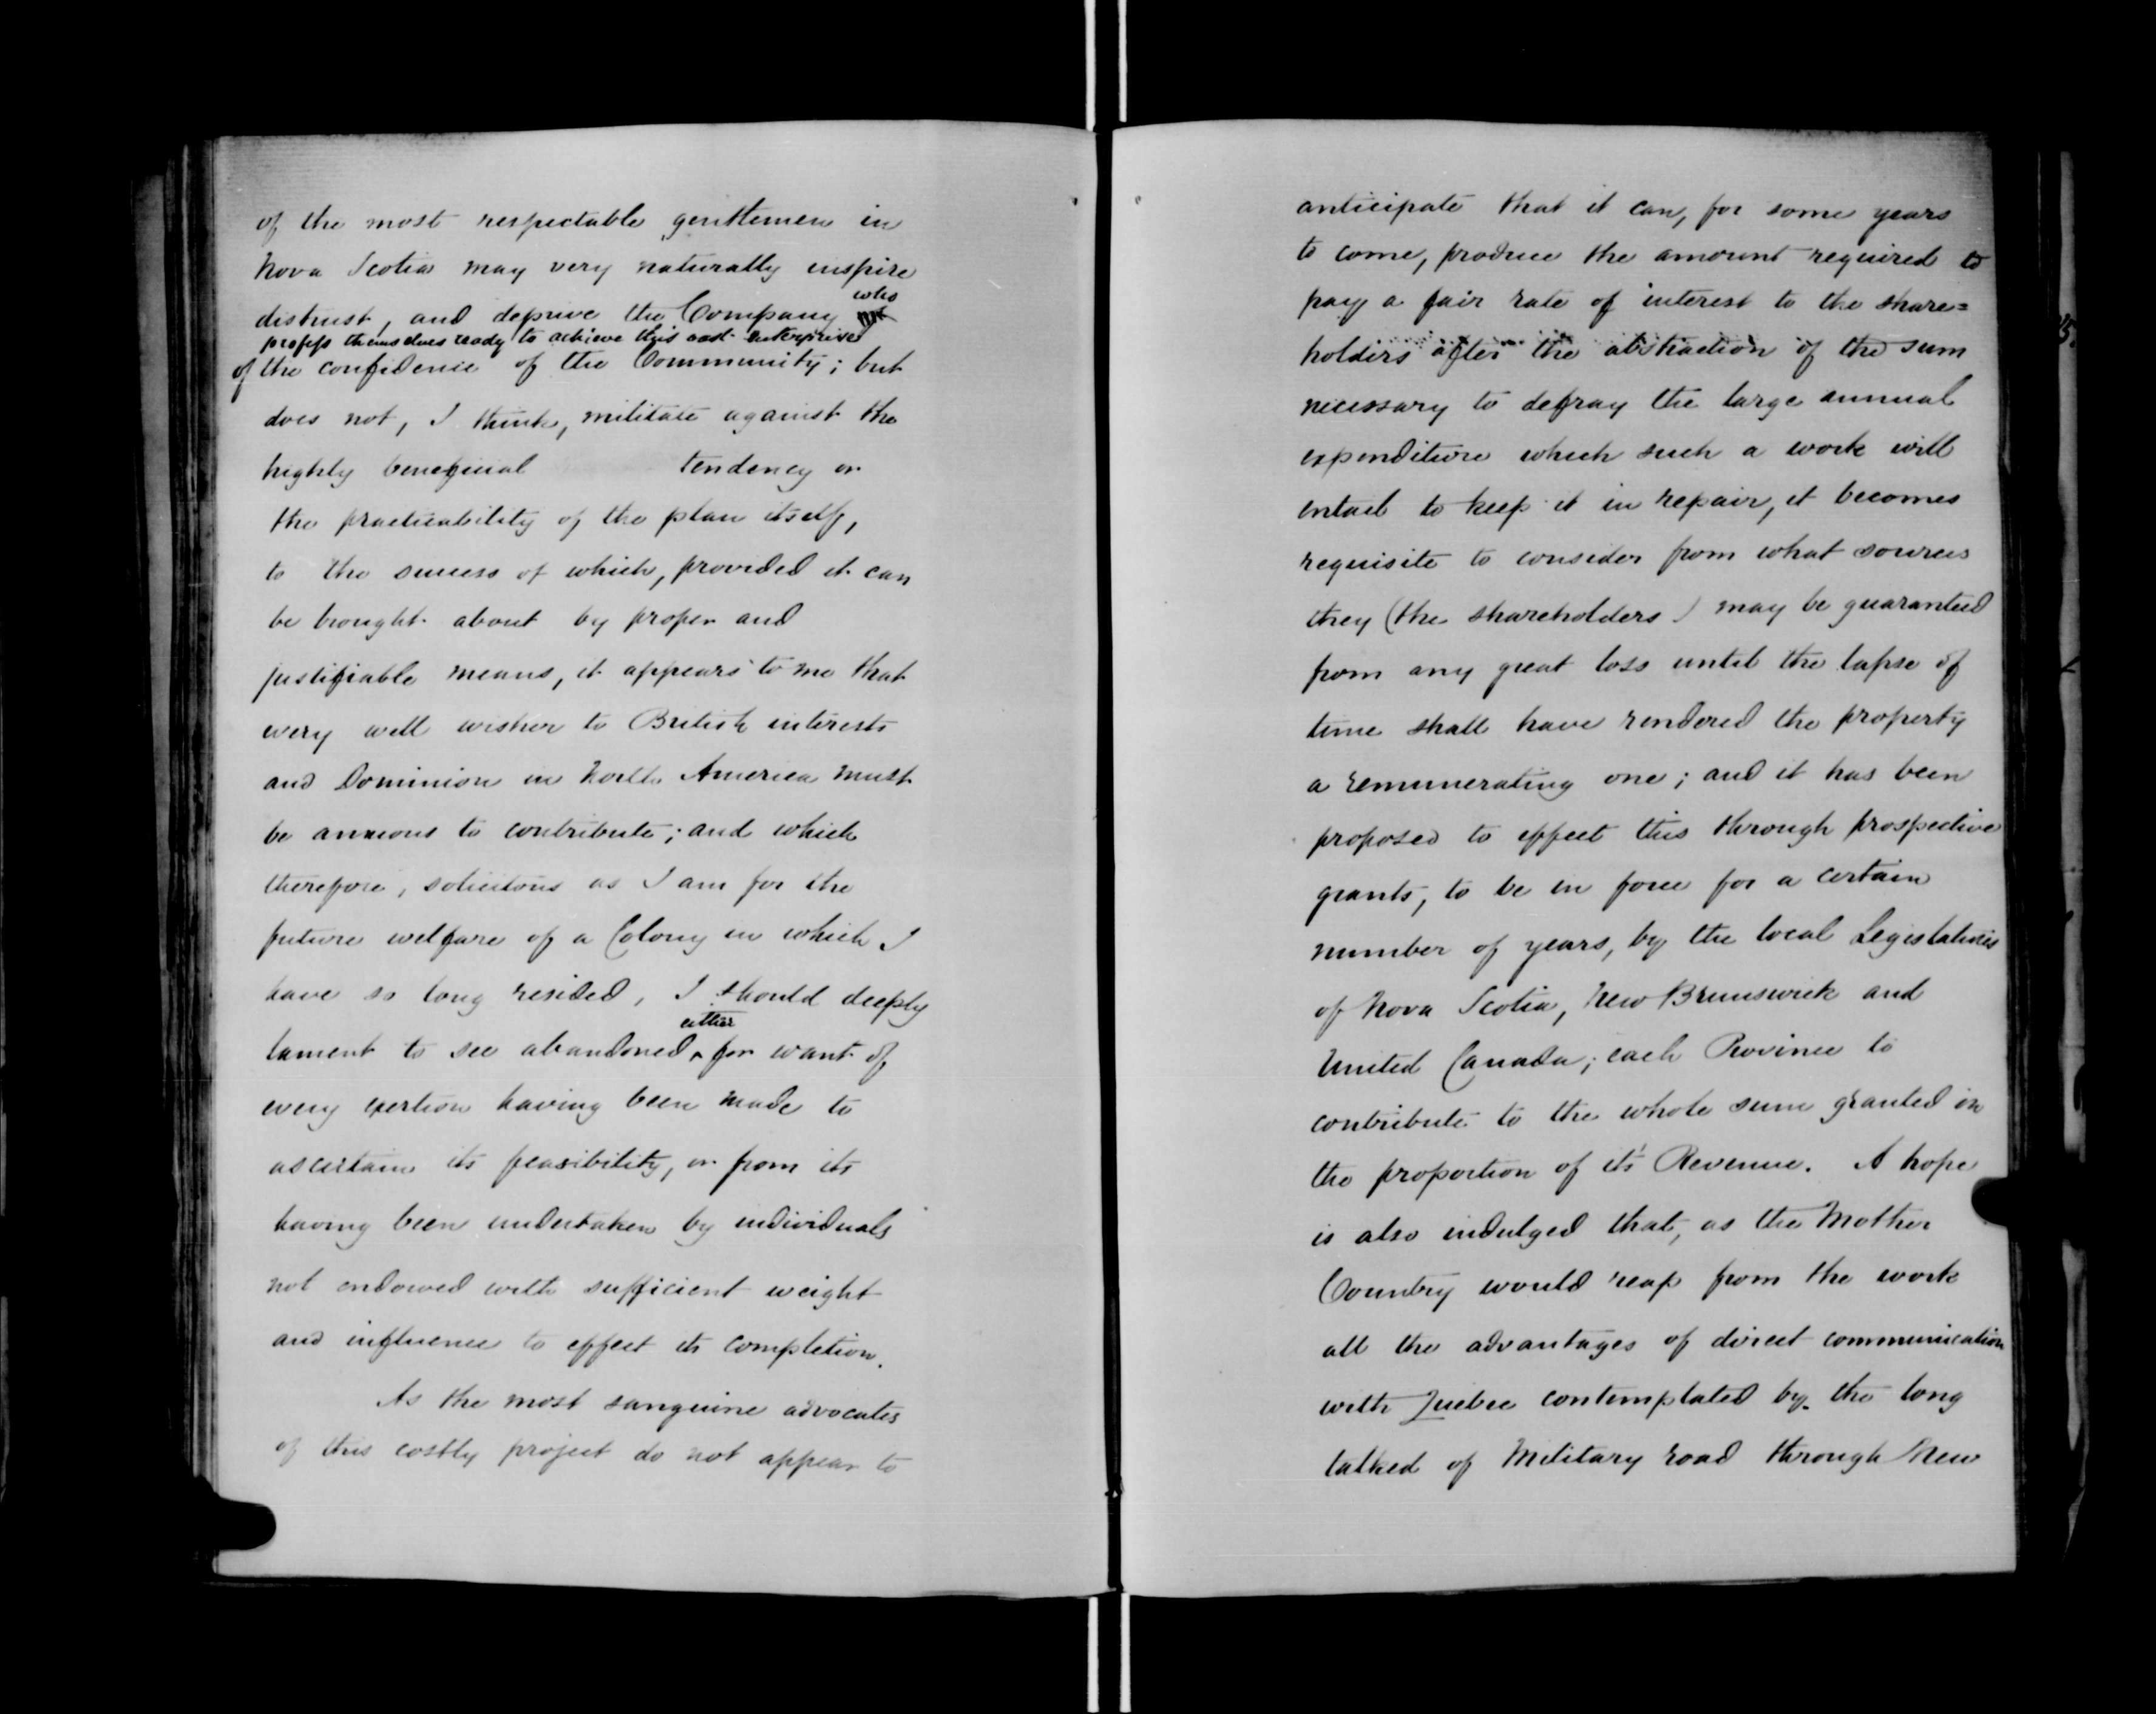 of the most respectable gentlemen in
Nova Scotia may very naturally inspire
distrust, and deprive the Company who
profess themselves ready to achieve this vast enterprise
of the confidence of the Community; but
does not, I think, militate against the
highly beneficial tendency or
the practicability of the plan itself,
to the success of which, provided it can
be brought about by proper and
justifiable means, it appears to me that
every well wisher to British interests
and Dominion in North America must
be anxious to contribute; and which
therefore, solicitous as I am for the
future welfare of a Colony in which I
have so long resided, I should deeply
either
lament to see abandoned, for want of
every exertion having been made to
ascertain its feasibility, or from its
having been undertaken by individuals
not endowed with sufficient weight
and influence to effect its completion.
As the most sanguine advocates
of this costly project do not appear to
anticipate that it can, for some years
to come, produce the amount required to
pay a fair rate of interest to the share=
holders after the abstraction of the sum
necessary to defray the large annual
expenditure which such a work will
entail to keep it in repair, it becomes
requisite to consider from what sources
they (the shareholders) may be guaranteed
from any great loss until the lapse of
time shall have rendered the property
a remunerating one; and it has been
proposed to effect this through prospective
grants, to be in force for a certain
number of years, by the local Legislatures
of Nova Scotia, New Brunswick and
United Canada; each Province to
contribute to the whole sum granted in
the proportion of it's Revenue. A hope
is also indulged that, as the Mother
Country would reap from the work
all the advantages of direct communication
with Quebec contemplated by the long
talked of Military road through New